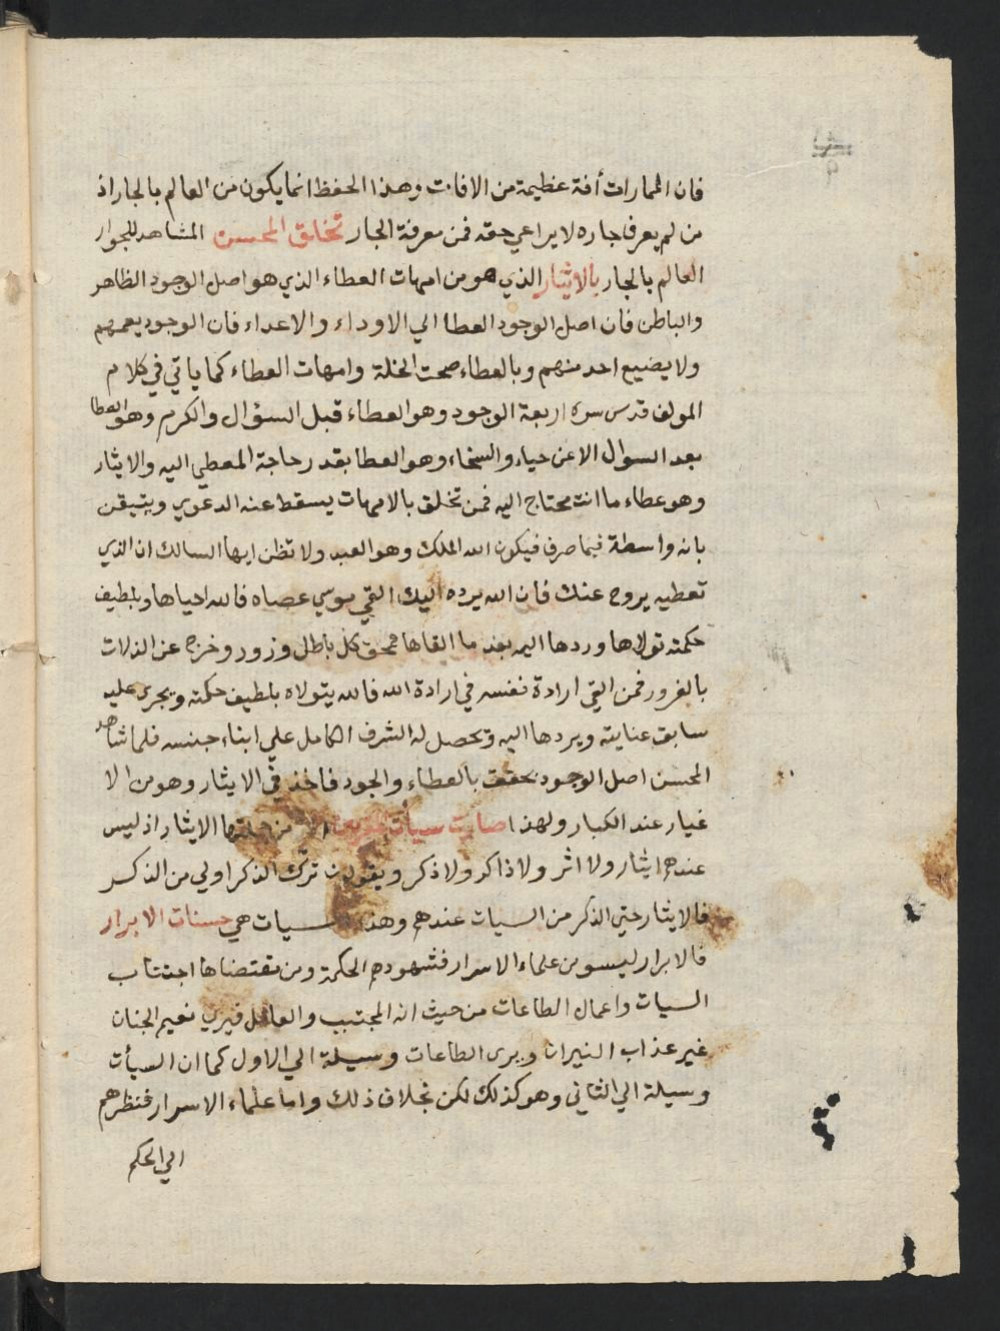 فان الممارات أفة عظيمة من الافات وهذا الحفظ انما يكون من العالم بالجار اذ
من لم يعرف جاره لا يراعي حقه فمن معرفة الجار تخلق المحسن المشاهد للجوار
العالم بالجار بالايثار الذي هو من امهات العطاء الذي هو اصل الوجود الظاهر
والباطن فان اصل الوجود العطا الي الاوداء والاعداء فان الوجود يعمهم
ولا يضيع احد منهم وبالعطاء صحت الخلة وامهات العطاء كما ياتي في كلام
المولف قدس سره اربعة الوجود وهو العطاء قبل السؤال والكرم وهو العطا
بعد السوال الا عن حياء والسخاء وهو العطا بقدر حاجة المعطي اليه والايثار
وهو عطاء ما انت محتاج اليه فمن تخلق بالامهات يسقط عنه الدعوي ويتيقن
بانه واسطة فيما صرف فيكون الله الملك وهو العبد ولا تظن ايها السالك ان الذي
تعطيه يروح عنك فان الله يرده اليك القي موسي عصاه فالله احياها وبلطيف
حكمته تولاها وردها اليه بعد ما القاها فمحق كل باطل وزور وخرج عن الذلات
بالغرور فمن القي ارادة نفسه في ارادة الله فالله يتولاه بلطيف حكمته ويجري عليه
سابق عنايته ويردها اليه وتحصل له الشرف الكامل علي ابناء جنسه فلما شاهد
المحسن اصل الوجود تحقق بالعطاء والجود فاخذ في الايثار وهو من الا
غيار عند الكبار ولهذا صارت سيأت من جملتها الايثار اذ ليس
عندهم ايثار ولا اثر ولا ذاكر ولا ذكر ويقولون ترك الذكر اولي من الذكر
فالايثار حتي الذكر من السيات عندهم وهذه السيات هي حسنات الابرار
فالابرار ليسو من علماء الاسرار فشهودهم الحكمة ومن مقتضاها اجتناب
السيات واعمال الطاعات من حيث انه المجتنب والعامل فيري نعيم الجنان
غير عذاب النيران ويرى الطاعات وسيلة الي الاول كما ان السيأت
وسيلة الي الثاني وهو كذلك لكن بخلاف ذلك واما علماء الاسرار فنظرهم
الي الحكم